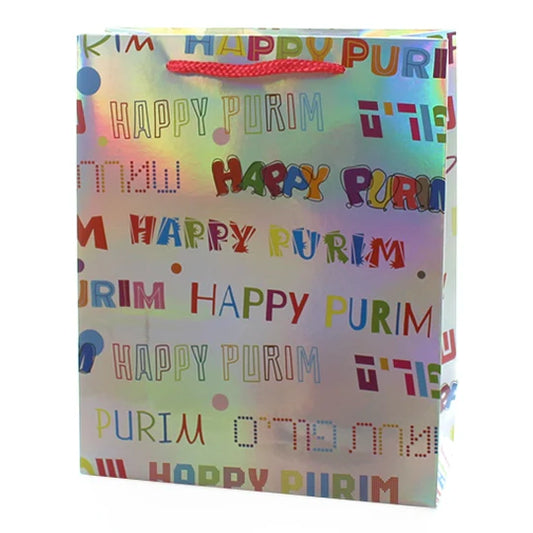 RIM HAPPY PURIM
HAPPY PURIM פורים
שמחת HAPPY PURIM
M HAPPY PURIM
URIM HAPPY PURIM
M HAPPY PURIM פורים
PURIM שמחת פורים
HAPPY PURIM